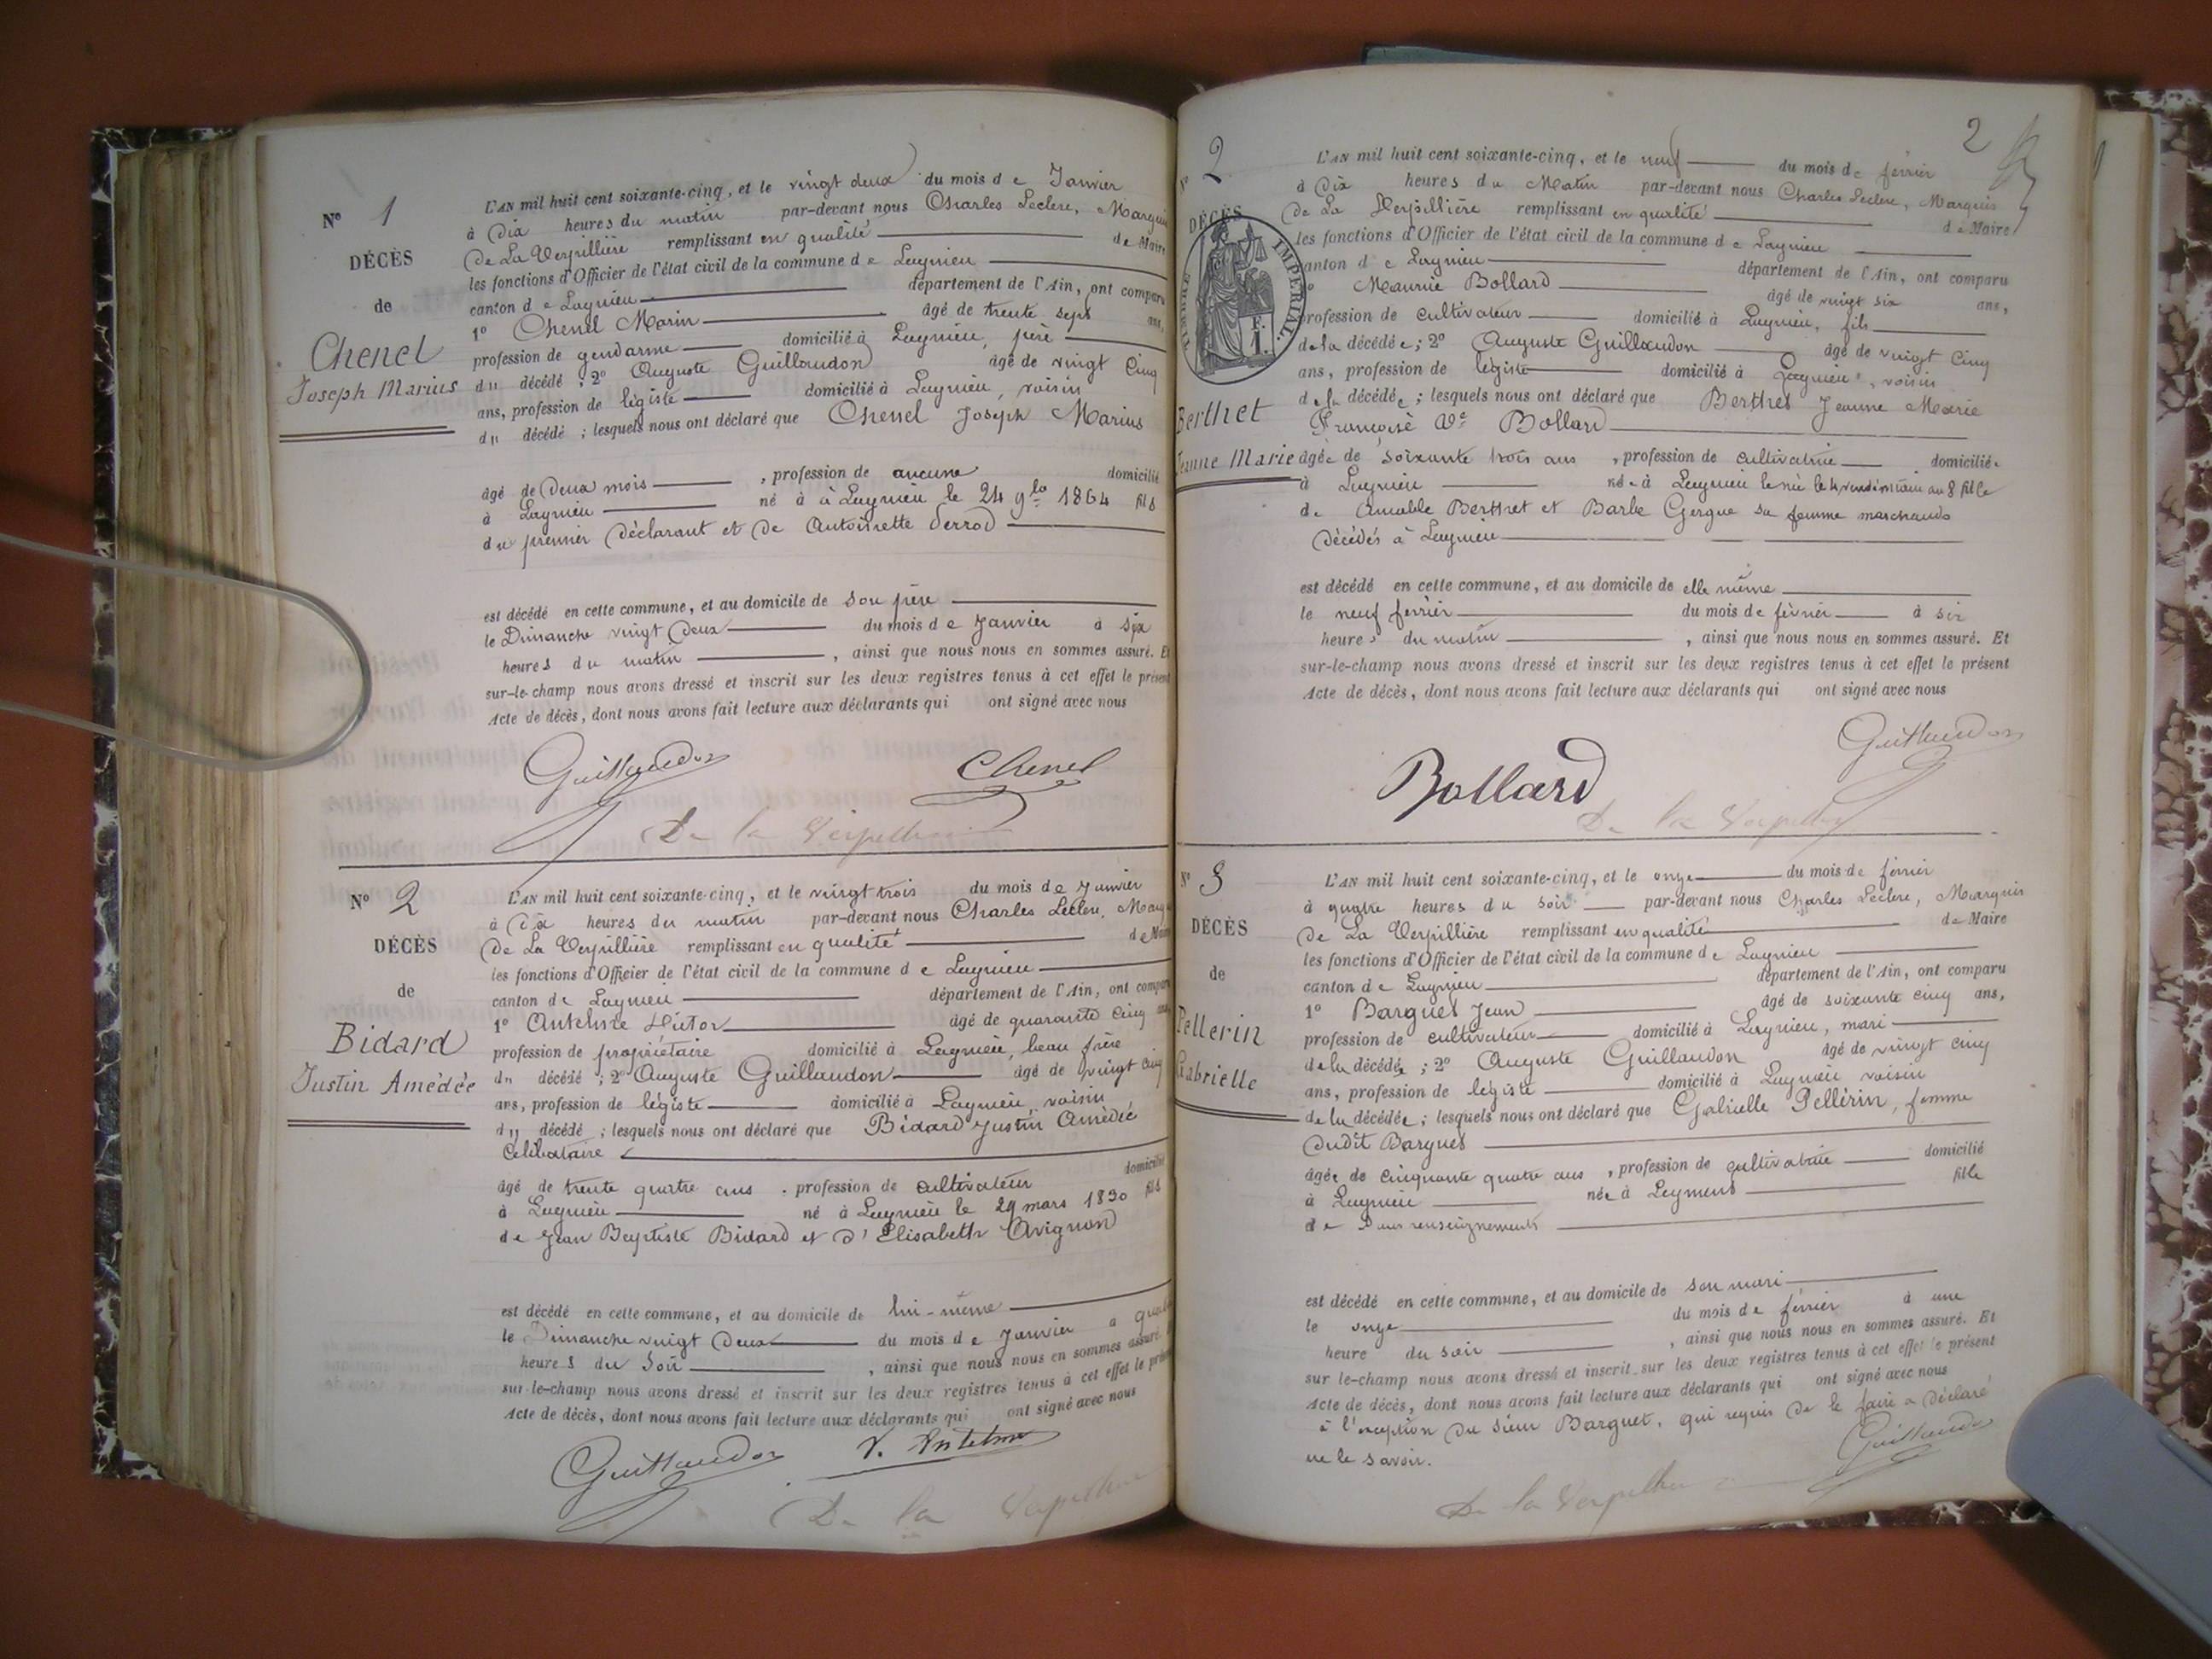 N° 1
DÉCÈS
de
Chenel
Joseph Marius
L'AN mil huit cent soixante-cinq, et le vingt deux du mois de Janvier
à Dix heures du matin par-devant nous Charles Leclere, Marquis
De La Verpillière remplissant en qualité de Maire
les fonctions d'Officier de l'état civil de la commune de Lagnieu
canton de Lagnieu département de l'Ain, ont comparu
1° Chenel Marin âgé de trente sept ans,
profession de gendarme domicilié à Lagnieu, père
du décédé ; 2° Auguste Guillaudon âgé de vingt cinq
ans, profession de légiste domicilié à Lagnieu, voisin
du décédé ; lesquels nous ont déclaré que Chenel Joseph Marius
âgé de Deux mois , profession de aucune domicilié
à Lagnieu né à à Lagnieu le 24 9bre 1864 fils
du premier Déclarant et de Antoinette Perrod
est décédé en cette commune, et au domicile de son père
le Dimanche vingt Deux du mois de Janvier à six
heures du matin , ainsi que nous nous en sommes assuré. Et
sur-le-champ nous avons dressé et inscrit sur les deux registres tenus à cet effet le présent
Acte de décès, dont nous avons fait lecture aux déclarants qui ont signé avec nous
Guillaudon Chenel
De la Verpillière
N° 2
DÉCÈS
de
Bidard
Justin Amédée
L'AN mil huit cent soixante-cinq, et le vingt trois du mois de Janvier
à Dix heures du matin par-devant nous Charles Leclere, Marq
De La Verpillière remplissant en qualité de Maire
les fonctions d'Officier de l'état civil de la commune de Lagnieu
canton de Lagnieu département de l'Ain, ont comparu
1° Antelme Victor âgé de quarante cinq ans
profession de propriétaire domicilié à Lagnieu, beau frère
du décédé ; 2° Auguste Guillaudon âgé de vingt cinq
ans, profession de légiste domicilié à Lagnieu, voisin
du décédé ; lesquels nous ont déclaré que Bidard Justin Amédée
Célibataire
âgé de trente quatre ans , profession de cultivateur domicilié
à Lagnieu né à Lagnieu le 29 mars 1830 fils
de Jean Baptiste Bidard et d'Elisabeth Avignon
est décédé en cette commune, et au domicile de lui-même
le Dimanche vingt Deux du mois de Janvier à quatre
heures du soir , ainsi que nous nous en sommes assuré.
sur-le-champ nous avons dressé et inscrit sur les deux registres tenus à cet effet le présent
Acte de décès, dont nous avons fait lecture aux déclarants qui ont signé avec nous
Guillaudon V. Antelme
De la Verpillière
2
N° 2
DÉCÈS
TIMBRE IMPERIAL
F.
1.
Berthet
Jeanne Marie
L'AN mil huit cent soixante-cinq, et le neuf du mois de février
à Dix heures du Matin par-devant nous Charles Leclere, Marquis
De La Verpillière remplissant en qualité de Maire
les fonctions d'Officier de l'état civil de la commune de Lagnieu
canton de Lagnieu département de l'Ain, ont comparu
1° Maurice Bollard âgé de vingt six ans,
profession de cultivateur domicilié à Lagnieu, fils
de la décédée ; 2° Auguste Guillaudon âgé de vingt cinq
ans, profession de légiste domicilié à Lagnieu, voisin
de la décédée ; lesquels nous ont déclaré que Berthet Jeanne Marie
Françoise Ve Bollard
âgée de soixante trois ans , profession de cultivatrice domiciliée
à Lagnieu née à Lagnieu le née le 4 vendémiaire an 8 fille
de Amable Berthet et Barbe Gergue sa femme marchands
Décédés à Lagnieu
est décédé en cette commune, et au domicile de elle même
le neuf février du mois de février à six
heures du matin , ainsi que nous nous en sommes assuré. Et
sur-le-champ nous avons dressé et inscrit sur les deux registres tenus à cet effet le présent
Acte de décès, dont nous avons fait lecture aux déclarants qui ont signé avec nous
Guillaudon
Bollard
De la Verpillière
N° 3
DÉCÈS
de
Pellerin
Gabrielle
L'AN mil huit cent soixante-cinq, et le onze du mois de février
à quatre heures du soir par-devant nous Charles Leclere, Marquis
De La Verpillière remplissant en qualité de Maire
les fonctions d'Officier de l'état civil de la commune de Lagnieu
canton de Lagnieu département de l'Ain, ont comparu
1° Barguet Jean âgé de soixante cinq ans,
profession de cultivateur domicilié à Lagnieu, mari
de la décédée ; 2° Auguste Guillaudon âgé de vingt cinq
ans, profession de légiste domicilié à Lagnieu voisin
de la décédée ; lesquels nous ont déclaré que Gabrielle Pellerin, femme
dudit Barguet
âgée de cinquante quatre ans , profession de cultivatrice domicilié
à Lagnieu née à Leyment fille
de Sans renseignements
est décédé en cette commune, et au domicile de son mari
le onze du mois de février à une
heure du soir , ainsi que nous nous en sommes assuré. Et
sur le-champ nous avons dressé et inscrit sur les deux registres tenus à cet effet le présent
Acte de décès, dont nous avons fait lecture aux déclarants qui ont signé avec nous
à l'exception du sieur Barguet, qui requis de le faire a déclaré
ne le savoir.
Guillaudon
De la Verpillière